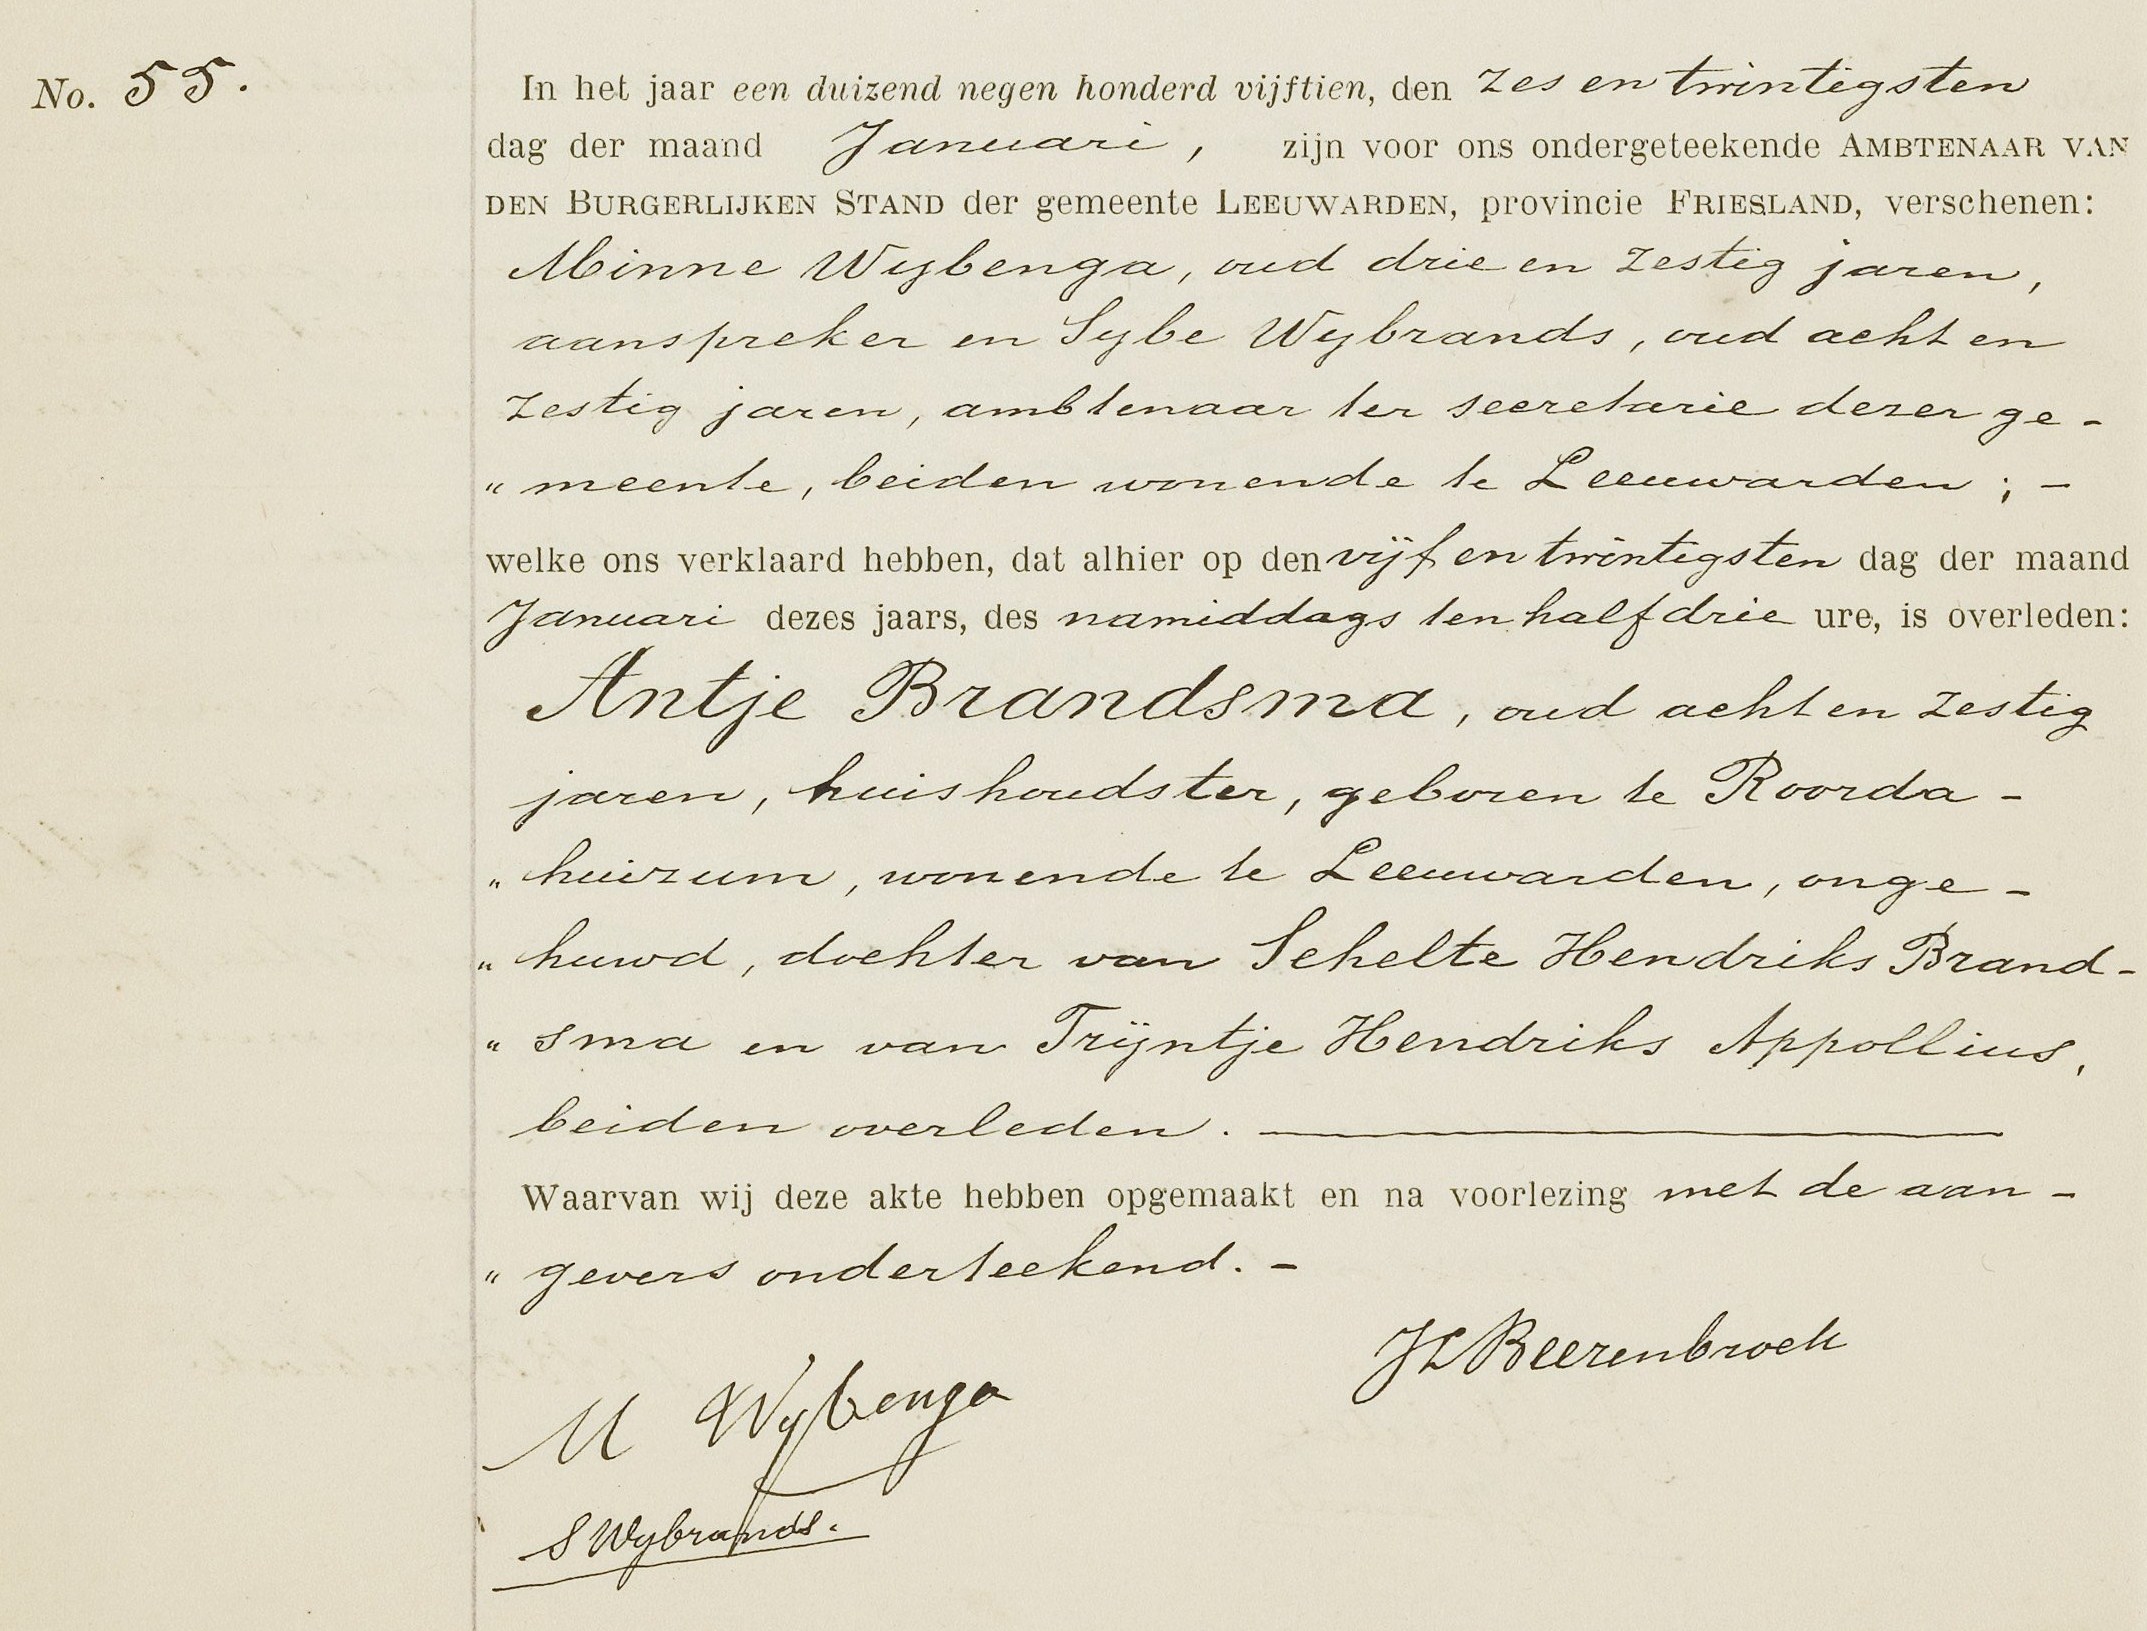 No. 55.
In het jaar een duizend negen honderd vijftien, den zes en twintigsten
dag der maand Januari, zijn voor ons ondergeteekende AMBTENAAR VAN
DEN BURGERLIJKEN STAND der gemeente LEEUWARDEN, provincie FRIESLAND, verschenen:
Minne Wybenga, oud drie en zestig jaren,
aanspreker en Sybe Wybrands, oud acht en
zestig jaren, ambtenaar ter secretarie dezer ge-
"meente, beiden wonende te Leeuwarden; -
welke ons verklaard hebben, dat alhier op den vijf en twintigsten dag der maand
Januari dezes jaars, des namiddags ten half drie ure, is overleden:
Antje Brandsma, oud acht en zestig
jaren, huishoudster, geboren te Roorda-
"huizum, wonende te Leeuwarden, onge-
"huwd, dochter van Schelte Hendriks Brand-
"sma en van Trijntje Hendriks Appollius,
beiden overleden. —
Waarvan wij deze akte hebben opgemaakt en na voorlezing met de aan-
"gevers onderteekend. -
JLBeerenbroek
M Wybenga
S Wybrands.